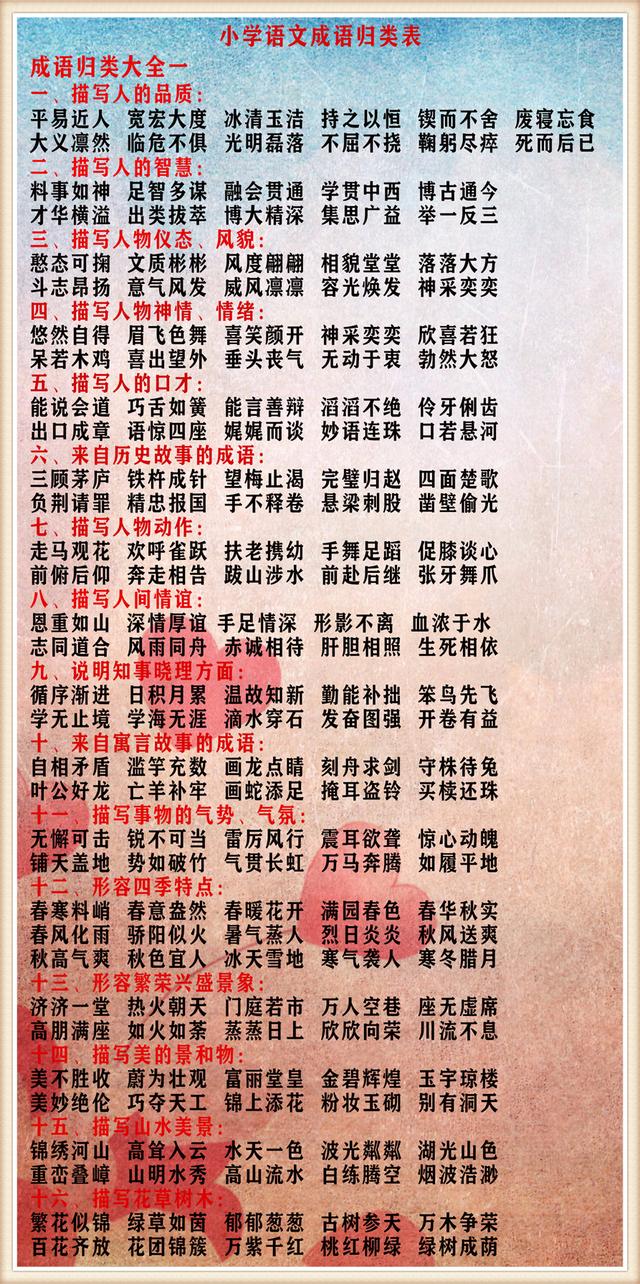 小学语文成语归类表
成语归类大全一
一、描写人的品质：
平易近人 宽宏大度 冰清玉洁 持之以恒 锲而不舍 废寝忘食
大义凛然 临危不俱 光明磊落 不屈不挠 鞠躬尽瘁 死而后已
二、描写人的智慧：
料事如神 足智多谋 融会贯通 学贯中西 博古通今
才华横溢 出类拔萃 博大精深 集思广益 举一反三
三、描写人物仪态、风貌：
憨态可掬 文质彬彬 风度翩翩 相貌堂堂 落落大方
斗志昂扬 意气风发 威风凛凛 容光焕发 神采奕奕
四、描写人物神情、情绪：
悠然自得 眉飞色舞 喜笑颜开 神采奕奕 欣喜若狂
呆若木鸡 喜出望外 垂头丧气 无动于衷 勃然大怒
五、描写人的口才：
能说会道 巧舌如簧 能言善辩 滔滔不绝 伶牙俐齿
出口成章 语惊四座 娓娓而谈 妙语连珠 口若悬河
六、来自历史故事的成语：
三顾茅庐 铁杵成针 望梅止渴 完璧归赵 四面楚歌
负荆请罪 精忠报国 手不释卷 悬梁刺股 凿壁偷光
七、描写人物动作：
走马观花 欢呼雀跃 扶老携幼 手舞足蹈 促膝谈心
前俯后仰 奔走相告 跋山涉水 前赴后继 张牙舞爪
八、描写人间情谊：
恩重如山 深情厚谊 手足情深 形影不离 血浓于水
志同道合 风雨同舟 赤诚相待 肝胆相照 生死相依
九、说明知事晓理方面：
循序渐进 日积月累 温故知新 勤能补拙 笨鸟先飞
学无止境 学海无涯 滴水穿石 发奋图强 开卷有益
十、来自寓言故事的成语：
自相矛盾 滥竽充数 画龙点睛 刻舟求剑 守株待兔
叶公好龙 亡羊补牢 画蛇添足 掩耳盗铃 买椟还珠
十一、描写事物的气势、气氛：
无懈可击 锐不可当 雷厉风行 震耳欲聋 惊心动魄
铺天盖地 势如破竹 气贯长虹 万马奔腾 如履平地
十二、形容四季特点：
春寒料峭 春意盎然 春暖花开 满园春色 春华秋实
春风化雨 骄阳似火 暑气蒸人 烈日炎炎 秋风送爽
秋高气爽 秋色宜人 冰天雪地 寒气袭人 寒冬腊月
十三、形容繁荣兴盛景象：
济济一堂 热火朝天 门庭若市 万人空巷 座无虚席
高朋满座 如火如荼 蒸蒸日上 欣欣向荣 川流不息
十四、描写美的景和物：
美不胜收 蔚为壮观 富丽堂皇 金碧辉煌 玉宇琼楼
美妙绝伦 巧夺天工 锦上添花 粉妆玉砌 别有洞天
十五、描写山水美景：
锦绣河山 高耸入云 水天一色 波光粼粼 湖光山色
重峦叠嶂 山明水秀 高山流水 白练腾空 烟波浩渺
十六、描写花草树木：
繁花似锦 绿草如茵 郁郁葱葱 古树参天 万木争荣
百花齐放 花团锦簇 万紫千红 桃红柳绿 绿树成荫